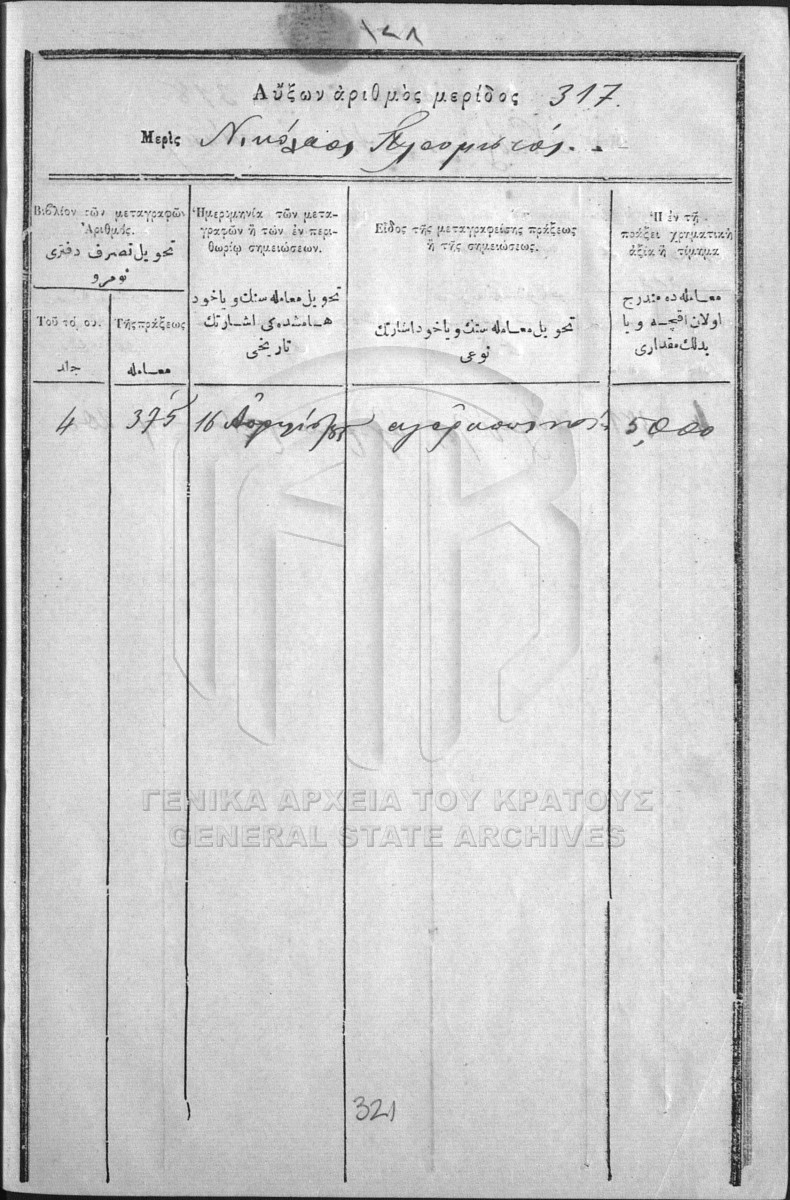 ١٤٨
Αὔξων ἀριθμὸς μερίδος 317.
Μερὶς Νικόλαος
Βιβλίον τῶν μεταγραφῶν
Ἀριθμός.
تحويل تصرف دفترى
نومرو
Τοῦ τόμου.
جلد
Τῆς πράξεως
معامله
Ἡμερομηνία τῶν μετα-
γραφῶν ἢ τῶν ἐν περι-
θωρίῳ σημειώσεων.
تحويل معامله سنك وياخود
هامشده كى اشارتك
تاريخى
Εἶδος τῆς μεταγραφείσης πράξεως
ἢ τῆς σημειώσεως.
تحويل معامله سنك وياخود اشارتك
نوعى
Ἡ ἐν τῇ
πράξει χρηματικὴ
ἀξία ἢ τίμημα
معامله ده مندرج
اولان اقچه ويا
بدلك مقدارى
4 375 16 5,000
ΓΕΝΙΚΑ ΑΡΧΕΙΑ ΤΟΥ ΚΡΑΤΟΥΣ
GENERAL STATE ARCHIVES
321